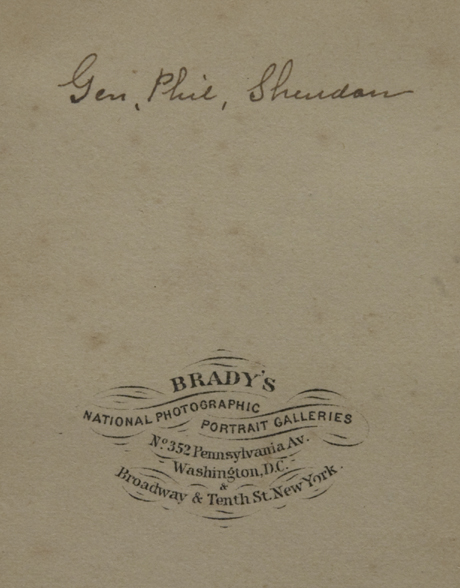 Gen. Phil, Sheridan
BRADY'S
NATIONAL PHOTOGRAPHIC
PORTRAIT GALLERIES
Nº 352 Pennsylvania Av.
Washington, D.C.
&
Broadway & Tenth St. New York.